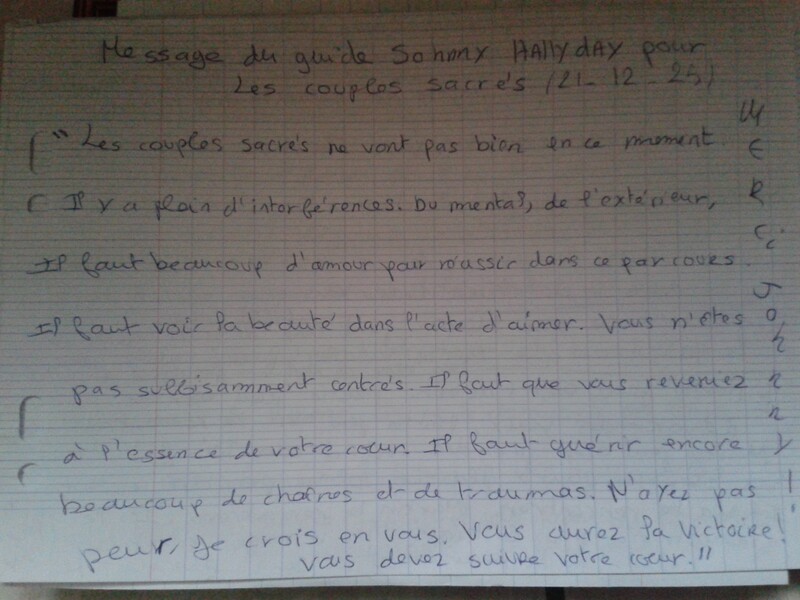 Message du guide Johnny HALLYDAY pour
Les couples sacrés (21-12-25)
"Les couples sacrés ne vont pas bien en ce moment.
Il y a plein d'interférences. Du mental, de l'extérieur,
Il faut beaucoup d'amour pour réussir dans ce parcours.
Il faut voir la beauté dans l'acte d'aimer. Vous n'êtes
pas suffisamment centrés. Il faut que vous reveniez
à l'essence de votre cœur. Il faut guérir encore
beaucoup de chaînes et de traumas. N'ayez pas
peur, je crois en vous. Vous aurez la victoire!
vous devez suivre votre cœur."
MERCi JOhnny!